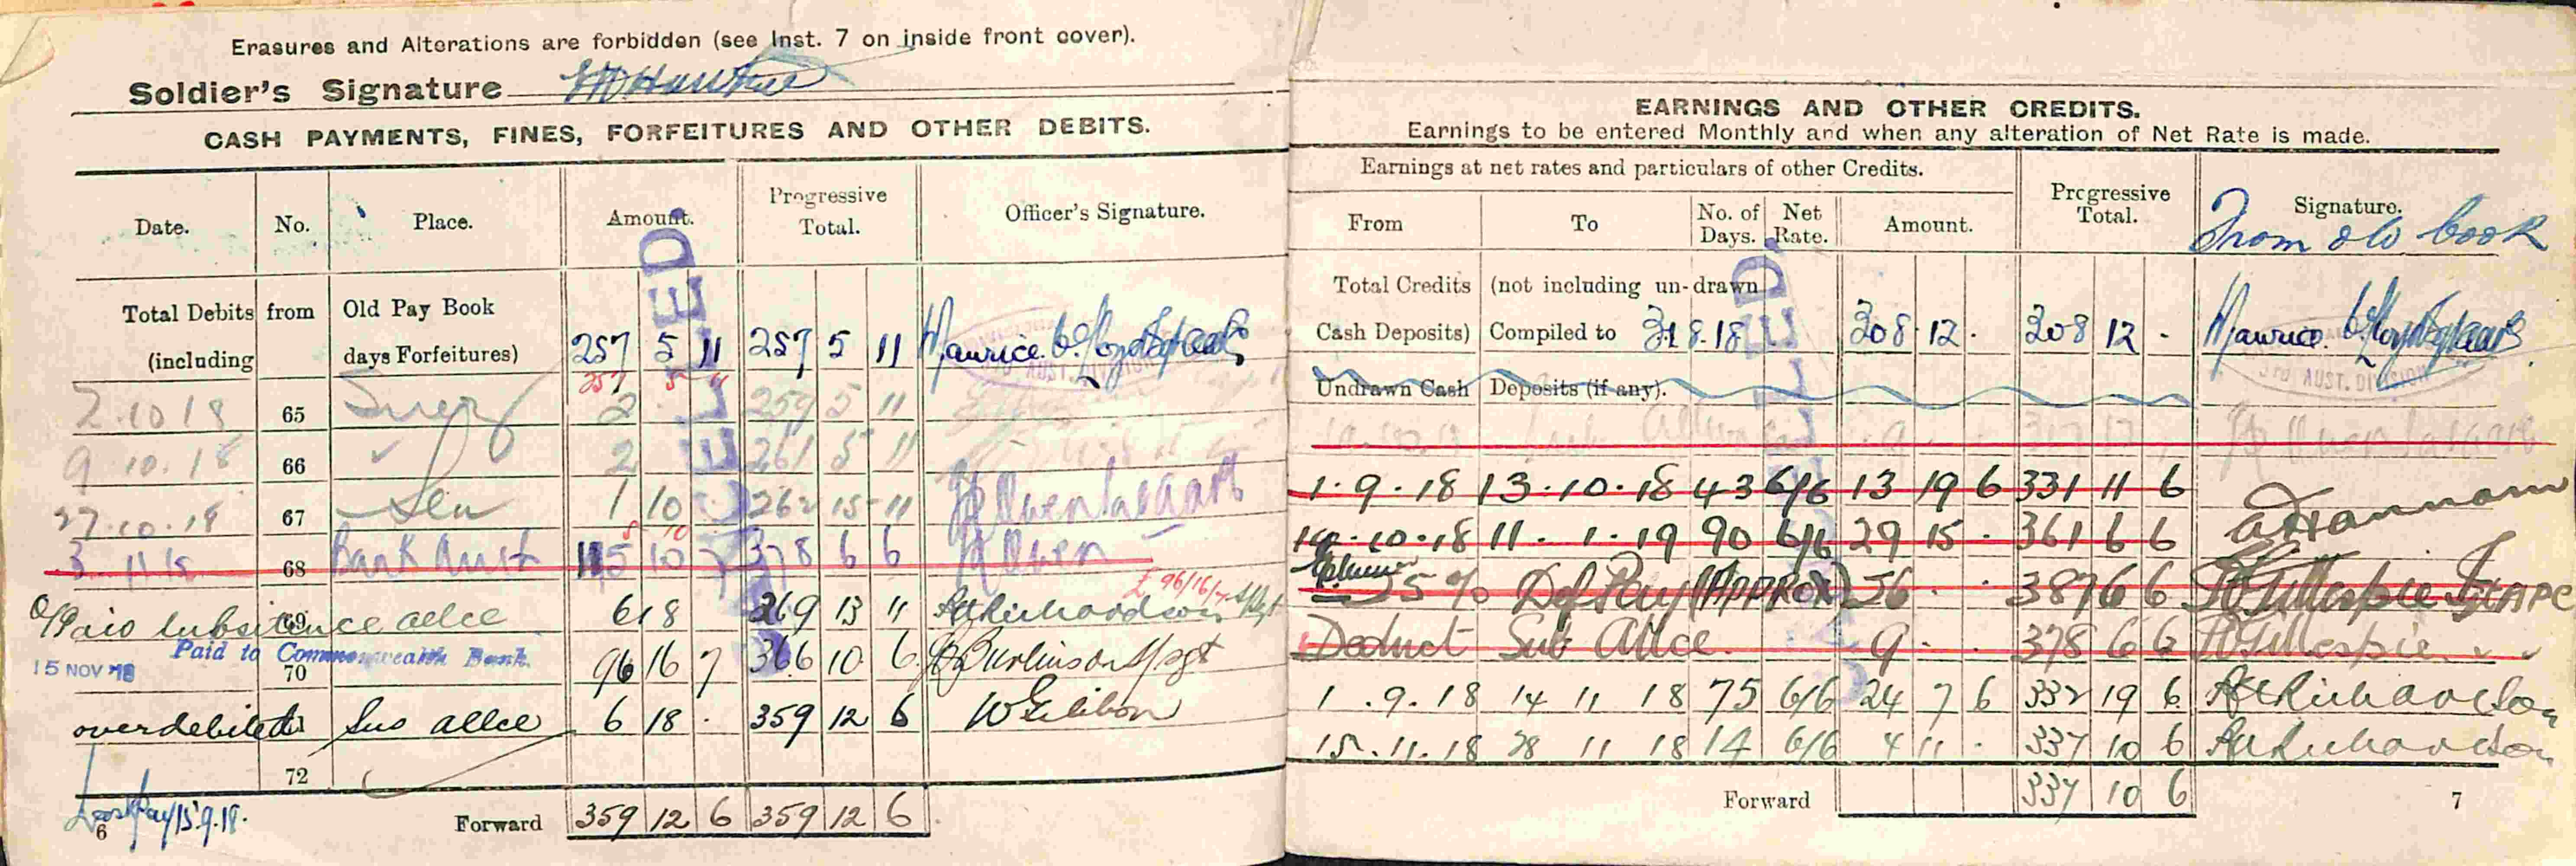 Erasures and Alterations are forbidden (see Inst. 7 on inside front cover).
Soldier's Signature
CASH PAYMENTS, FINES, FORFEITURES AND OTHER DEBITS.
Date. No. Place. Amount. Progressive Total. Officer's Signature.
Total Debits from Old Pay Book
(including days Forfeitures) 257 5 11 257 5 11 Maurice
257 5 11
2.10.18 65 Suez 2 259 5 11
9.10.18 66 2 261 5 11
27.10.18 67 Sea 1 10 262 15 11
3 11 18 68 Bank Aust 115 10 7 378 6 6
£96/16/7
O/Paid Subsistence allce 69 6 18 269 13 11 Richardson S/Sgt
15 NOV 18 Paid to Commonwealth Bank. 70 96 16 7 366 10 6 Burlinson S/Sgt
overdebited Sus allce 6 18 . 359 12 6
72
Last Pay 15.9.18.
6 Forward 359 12 6 359 12 6
EARNINGS AND OTHER CREDITS.
Earnings to be entered Monthly and when any alteration of Net Rate is made.
Earnings at net rates and particulars of other Credits. Progressive Total. Signature.
From To No. of Days. Net Rate. Amount.
From old book
Total Credits (not including un-drawn
Cash Deposits) Compiled to 31.8.18 308 12 . 308 12 - Maurice
3rd AUST. DIVISION
Undrawn Cash Deposits (if any).
1.9.18 13.10.18 43 6/6 13 19 6 331 11 6
14.10.18 11.1.19 90 6/6 29 15 . 361 6 6 Hannam
5% Def Pay (APPROX) 26 . . 387 6 6 Gillespie
Deduct Sub Allce. 9 . . 378 6 6 Gillespie
1.9.18 14 11 18 75 6/6 24 7 6 332 19 6 Richardson
15.11.18 28 11 18 14 6/6 4 11 . 337 10 6 Richardson
Forward 337 10 6
7